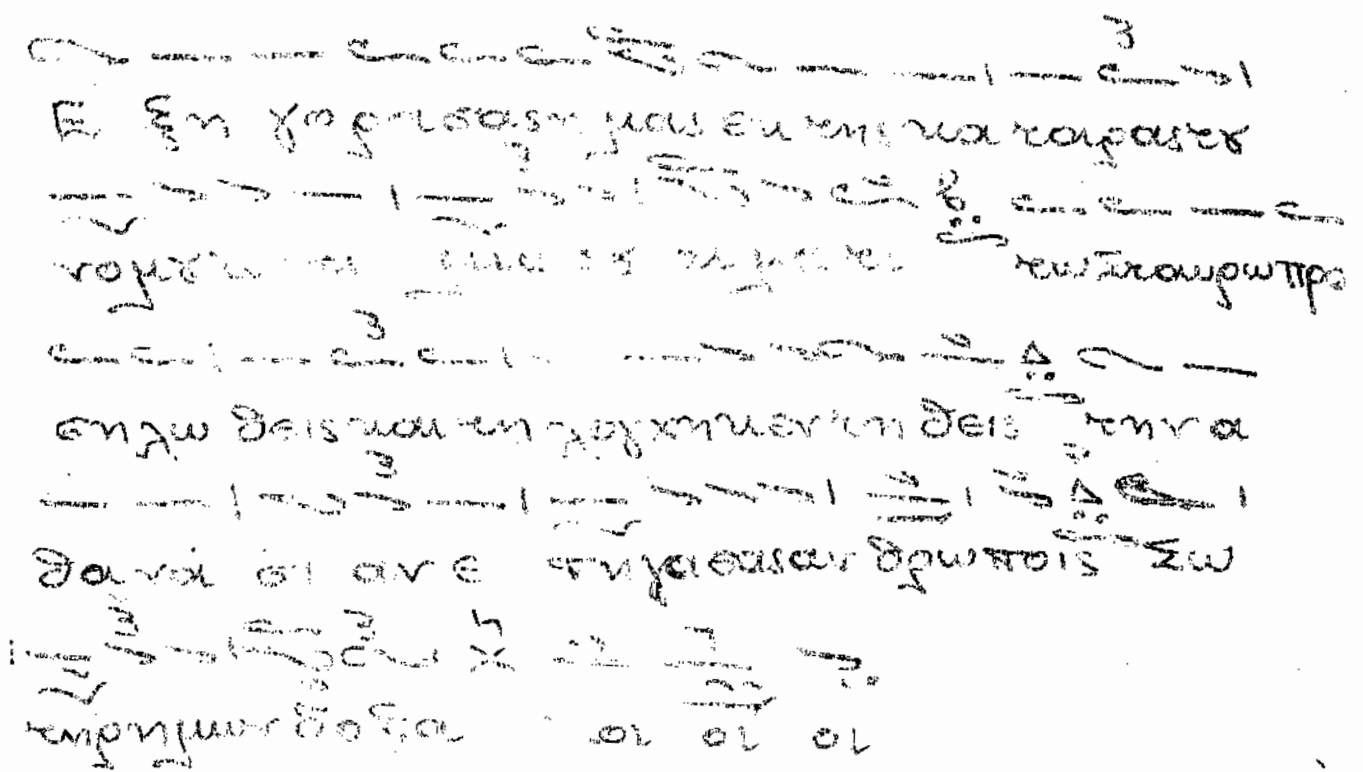 Ε ξη γο ρα σας η μας εκ της κα τα ρας τȣ
νομȣ τω τι μι ω σȣ αι μα τι τω Σταυρω προ
ση λω θεις και τη λογχη κεν τη θεις την α
θα να σι αν ε πη γα σας αν θρω ποις Σω
τηρ ημων δο ξα οι οι οι